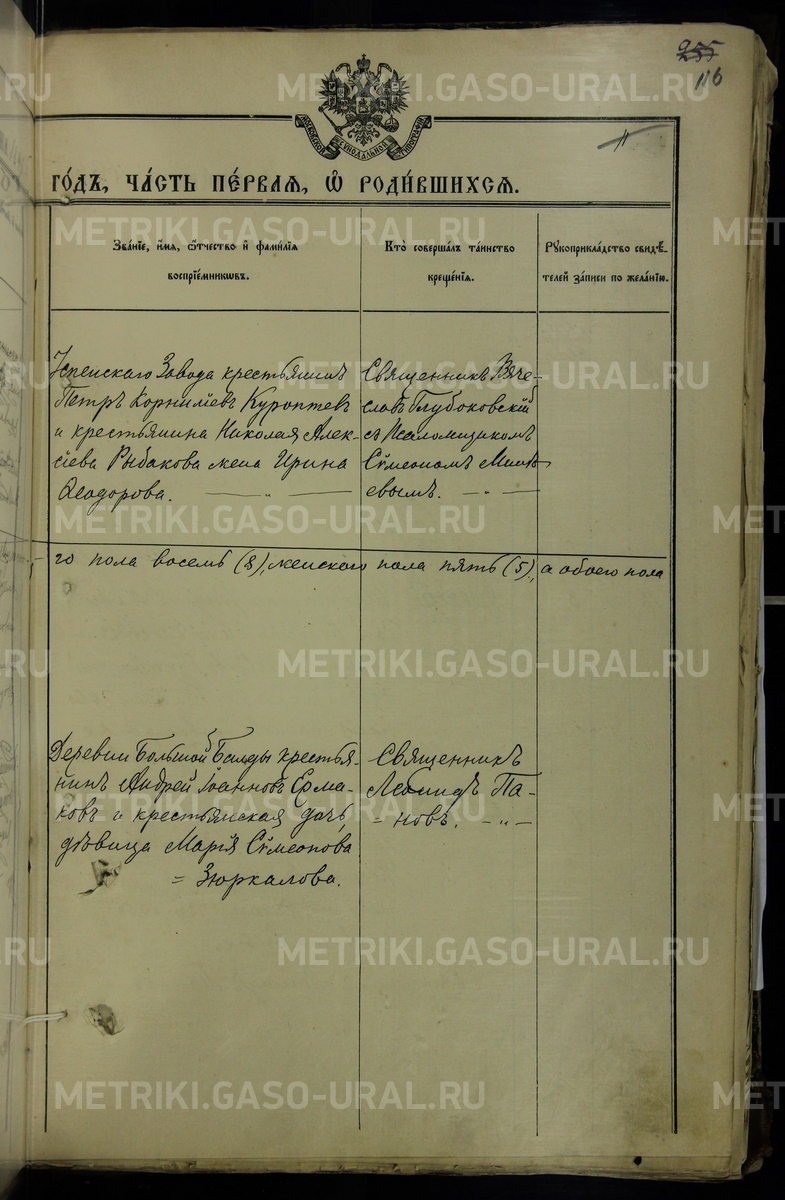 255
116
11
МОСКОВСКОЙ СУНОДАЛЬНОЙ ТИПОГРАФІИ
го́дъ, ча́сть пе́рваѧ, ѡ҆ роди́вшихсѧ.
Зва́нїе, и҆́мѧ, ѻ҆́тчество и҆ фами́лїѧ
воспрїе́мникѡвъ.
Кто̀ соверша́лъ та́инство
креще́нїѧ.
Рꙋкоприкла́дство свидѣ́-
телей за́писи по жела́нїю.
Успенскаго Завода крестьянинъ
Петръ Корниліевъ Куроптевъ
и крестьянина Николая Алек-
сіева Рыбакова жена Ирина
Ѳеодорова. — „ —
Священникъ Вяче-
славъ Глубоковскій
съ Псаломщикомъ
Сѵмеономъ Мине-
евымъ. — „ —
го пола восемь (8), женского пола пять (5), а обоего пола
Деревни Большой Балды крестья-
нинъ Андрей Іоанновъ Ерма-
ковъ и крестьянская дочь
дѣвица Марія Сѵмеонова
= Зюркалова.
Священникъ
Леонидъ Па-
- новъ. — „ —
METRIKI.GASO-URAL.RU